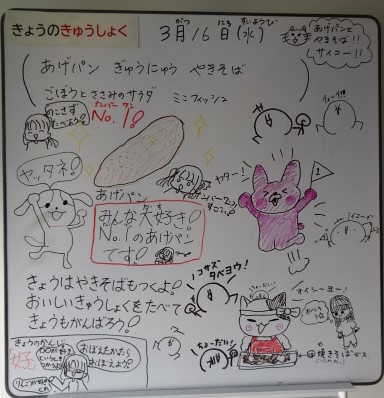 きょうのきゅうしょく
3月16日(水)
がつ にち すいようび
あげパンと
やきそば!!
サイコー!!
あげパン ぎゅうにゅう やきそば
ごぼうとささみのサラダ ミニフィッシュ
のこさず
たべよう!
ナンバー ワン
No.1!
ヤッタネ!
ヤター!
ナンバーワン!
すごい!
1
あげパン
みんな大好き!
No.1のあげパン
です!
きょうはやきそばもつくよ!
おいしいきゅうしょくをたべて
きょうもがんばろう!
ノコサズ
タベヨウ!
オイシーヨー!
ちょーだい!
きょうのかんじ
好
おぼえたかたち
おぼえよう!